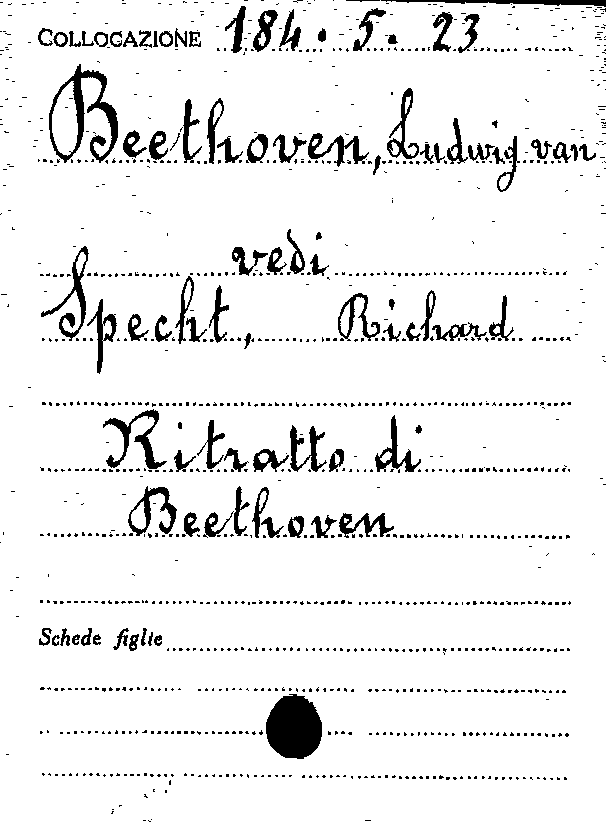 COLLOCAZIONE 184. 5. 23
Beethoven, Ludwig van
vedi
Specht, Richard
Ritratto di
Beethoven
Schede figlie